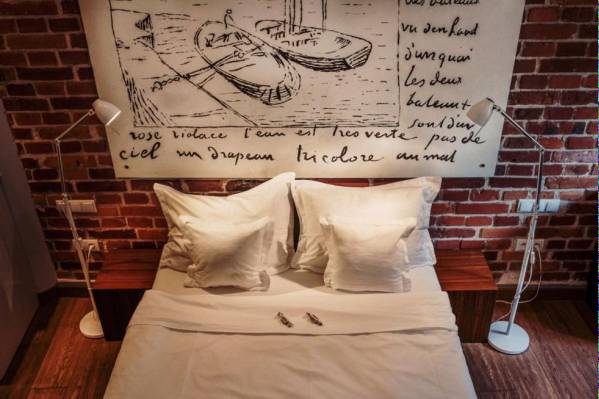 des bateaux
vu den haut
d'un quai
les deux
bateaux
sont d'un
rose violacé l'eau est très verte pas de
ciel un drapeau tricolore au mat